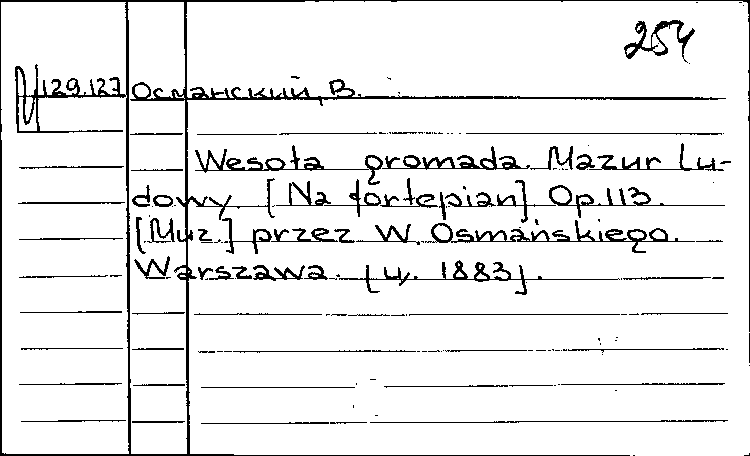 254
129.127 Османский, В.
Wesoła gromada. Mazur Lu-
dowy. [Na fortepian]. Op. 113.
[Muz.] przez W. Osmańskiego.
Warszawa. [ц. 1883].